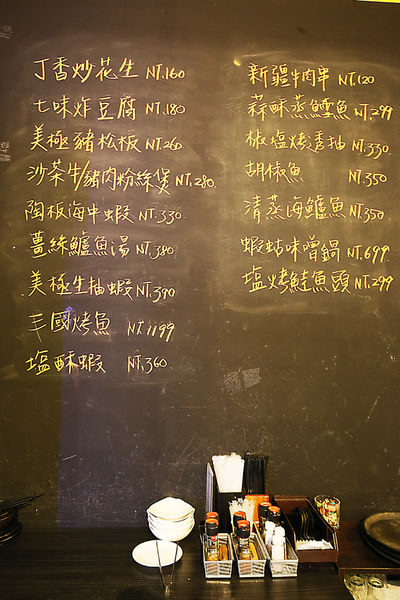 丁香炒花生 NT.160
七味炸豆腐 NT.180
美極豬松板 NT.260
沙茶牛/豬肉粉絲煲 NT.280
陶板海中蝦 NT.330
薑絲鱸魚湯 NT.380
美極生抽蝦 NT.390
烤魚 NT.1199
塩酥蝦 NT.360
新疆牛肉串 NT.120
蒜酥蒸鱈魚 NT.299
椒塩烤透抽 NT.330
胡椒魚 NT.350
清蒸海鱸魚 NT.350
蝦蛄味噌鍋 NT.699
塩烤鮭魚頭 NT.299